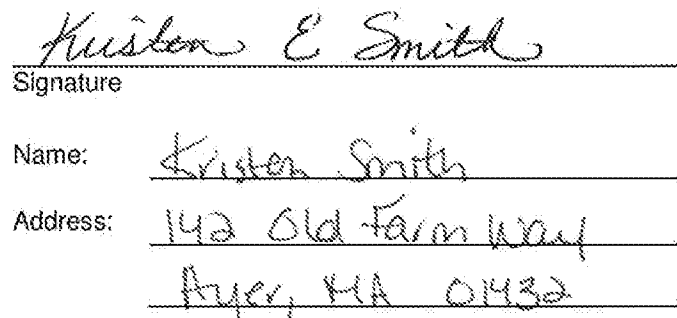 Kristen E Smith
Signature
Name: Kristen Smith
Address: 142 Old Farm Way
Ayer, MA 01432